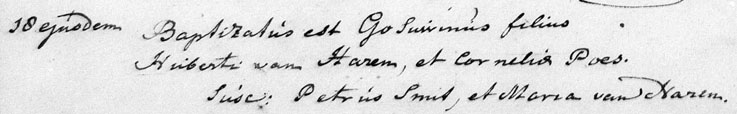 18 ejusdem Baptizatus est Goswinus filius
Huberti van Harem, et Cornelia Poes.
Susc: Petrus Smit, et Maria van Harem.